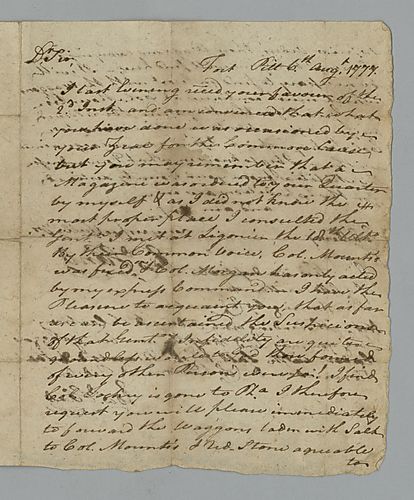 Dr Sir,
Fort Pitt 6th Augt 1777.
I last Evening recd your favour of the
2d Inst and am convinced that what
you have done was occasioned by
your Zeal for the Common Cause
but you may remember that a
Magazine was ordered to your Quarter
by myself & as I did not know the
most proper place I consulted the
Gent I met at Ligonier, the
By their Common Voice, Col. Mount's
was fixed & Col. Morgan has only acted
by my express Command. I have the
Pleasure to acquaint you, that as far
as can be ascertained The Suspicions
of that Gent's Infidelity are quite
of every other Person I find
Col. is gone to Pha I therefore
request you will please immediately
to forward the Waggons laden with Salt
to Col. Mount's Stone agreeable
to